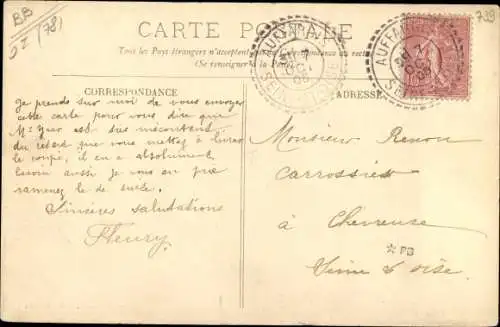 BB
739
CARTE POSTALE
Tous les Pays étrangers n'acceptent
(Se renseigner à la Poste)
CORRESPONDANCE
ADRESSE
AUFFA
SEINE
Je prends sur moi de vous envoyer
cette carte pour vous dire que
est très mécontent
du retard que vous mettez à livrer
le coupé, il en a absolument
besoin aussi je vous en prie
ramenez le de suite.
Sincères salutations
Fleury
Monsieur Renou
Carrossier
à Chevreuse
Seine & Oise
*PB